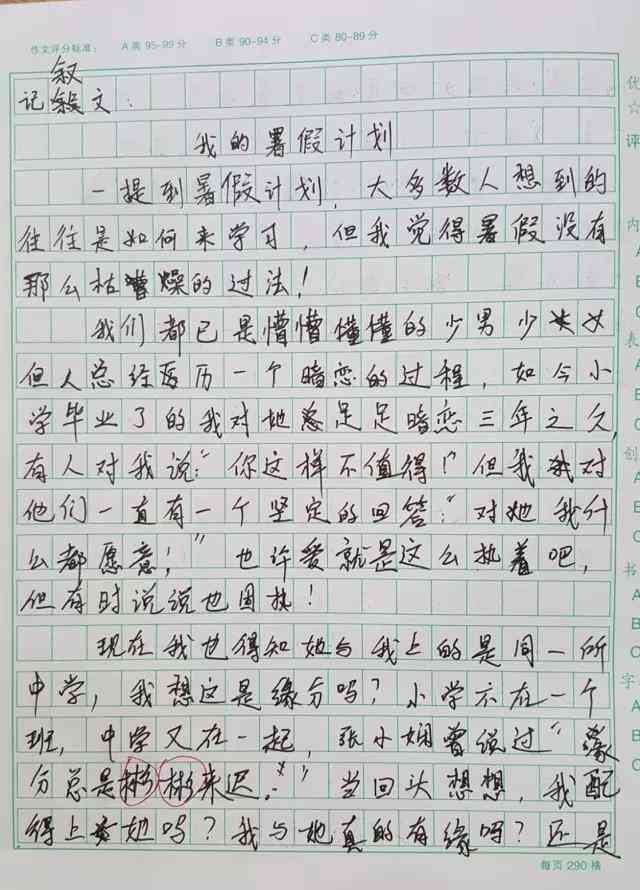 作文评分标准： A类 95-99分 B类 90-94分 C类 80-89分
叙
记叙文：
我的暑假计划
一提到暑假计划，大多数人想到的
往往是如何来学习，但我觉得暑假没有
那么枯燥的过法！
我们都已是懵懵懂懂的少男少女
但人总经历一个暗恋的过程，如今小
学毕业了的我对她足足暗恋三年之久，
有人对我说："你这样不值得！"但我对
他们一直有一个坚定的回答："对她我什
么都愿意！" 也许爱就是这么执着吧，
但有时说说也固执！
现在我也得知她与我上的是同一所
中学，我想这是缘分吗？小学不在一个
班，中学又在一起，张小娴曾说过"缘
分总是彬彬来迟。" 当回头想想，我配
得上她吗？我与她真的有缘吗？还是
每页 290 格
优
☆
评
内
A
B
C
表
A
B
C
创
A
B
C
书
A
B
C
字
A
B
C